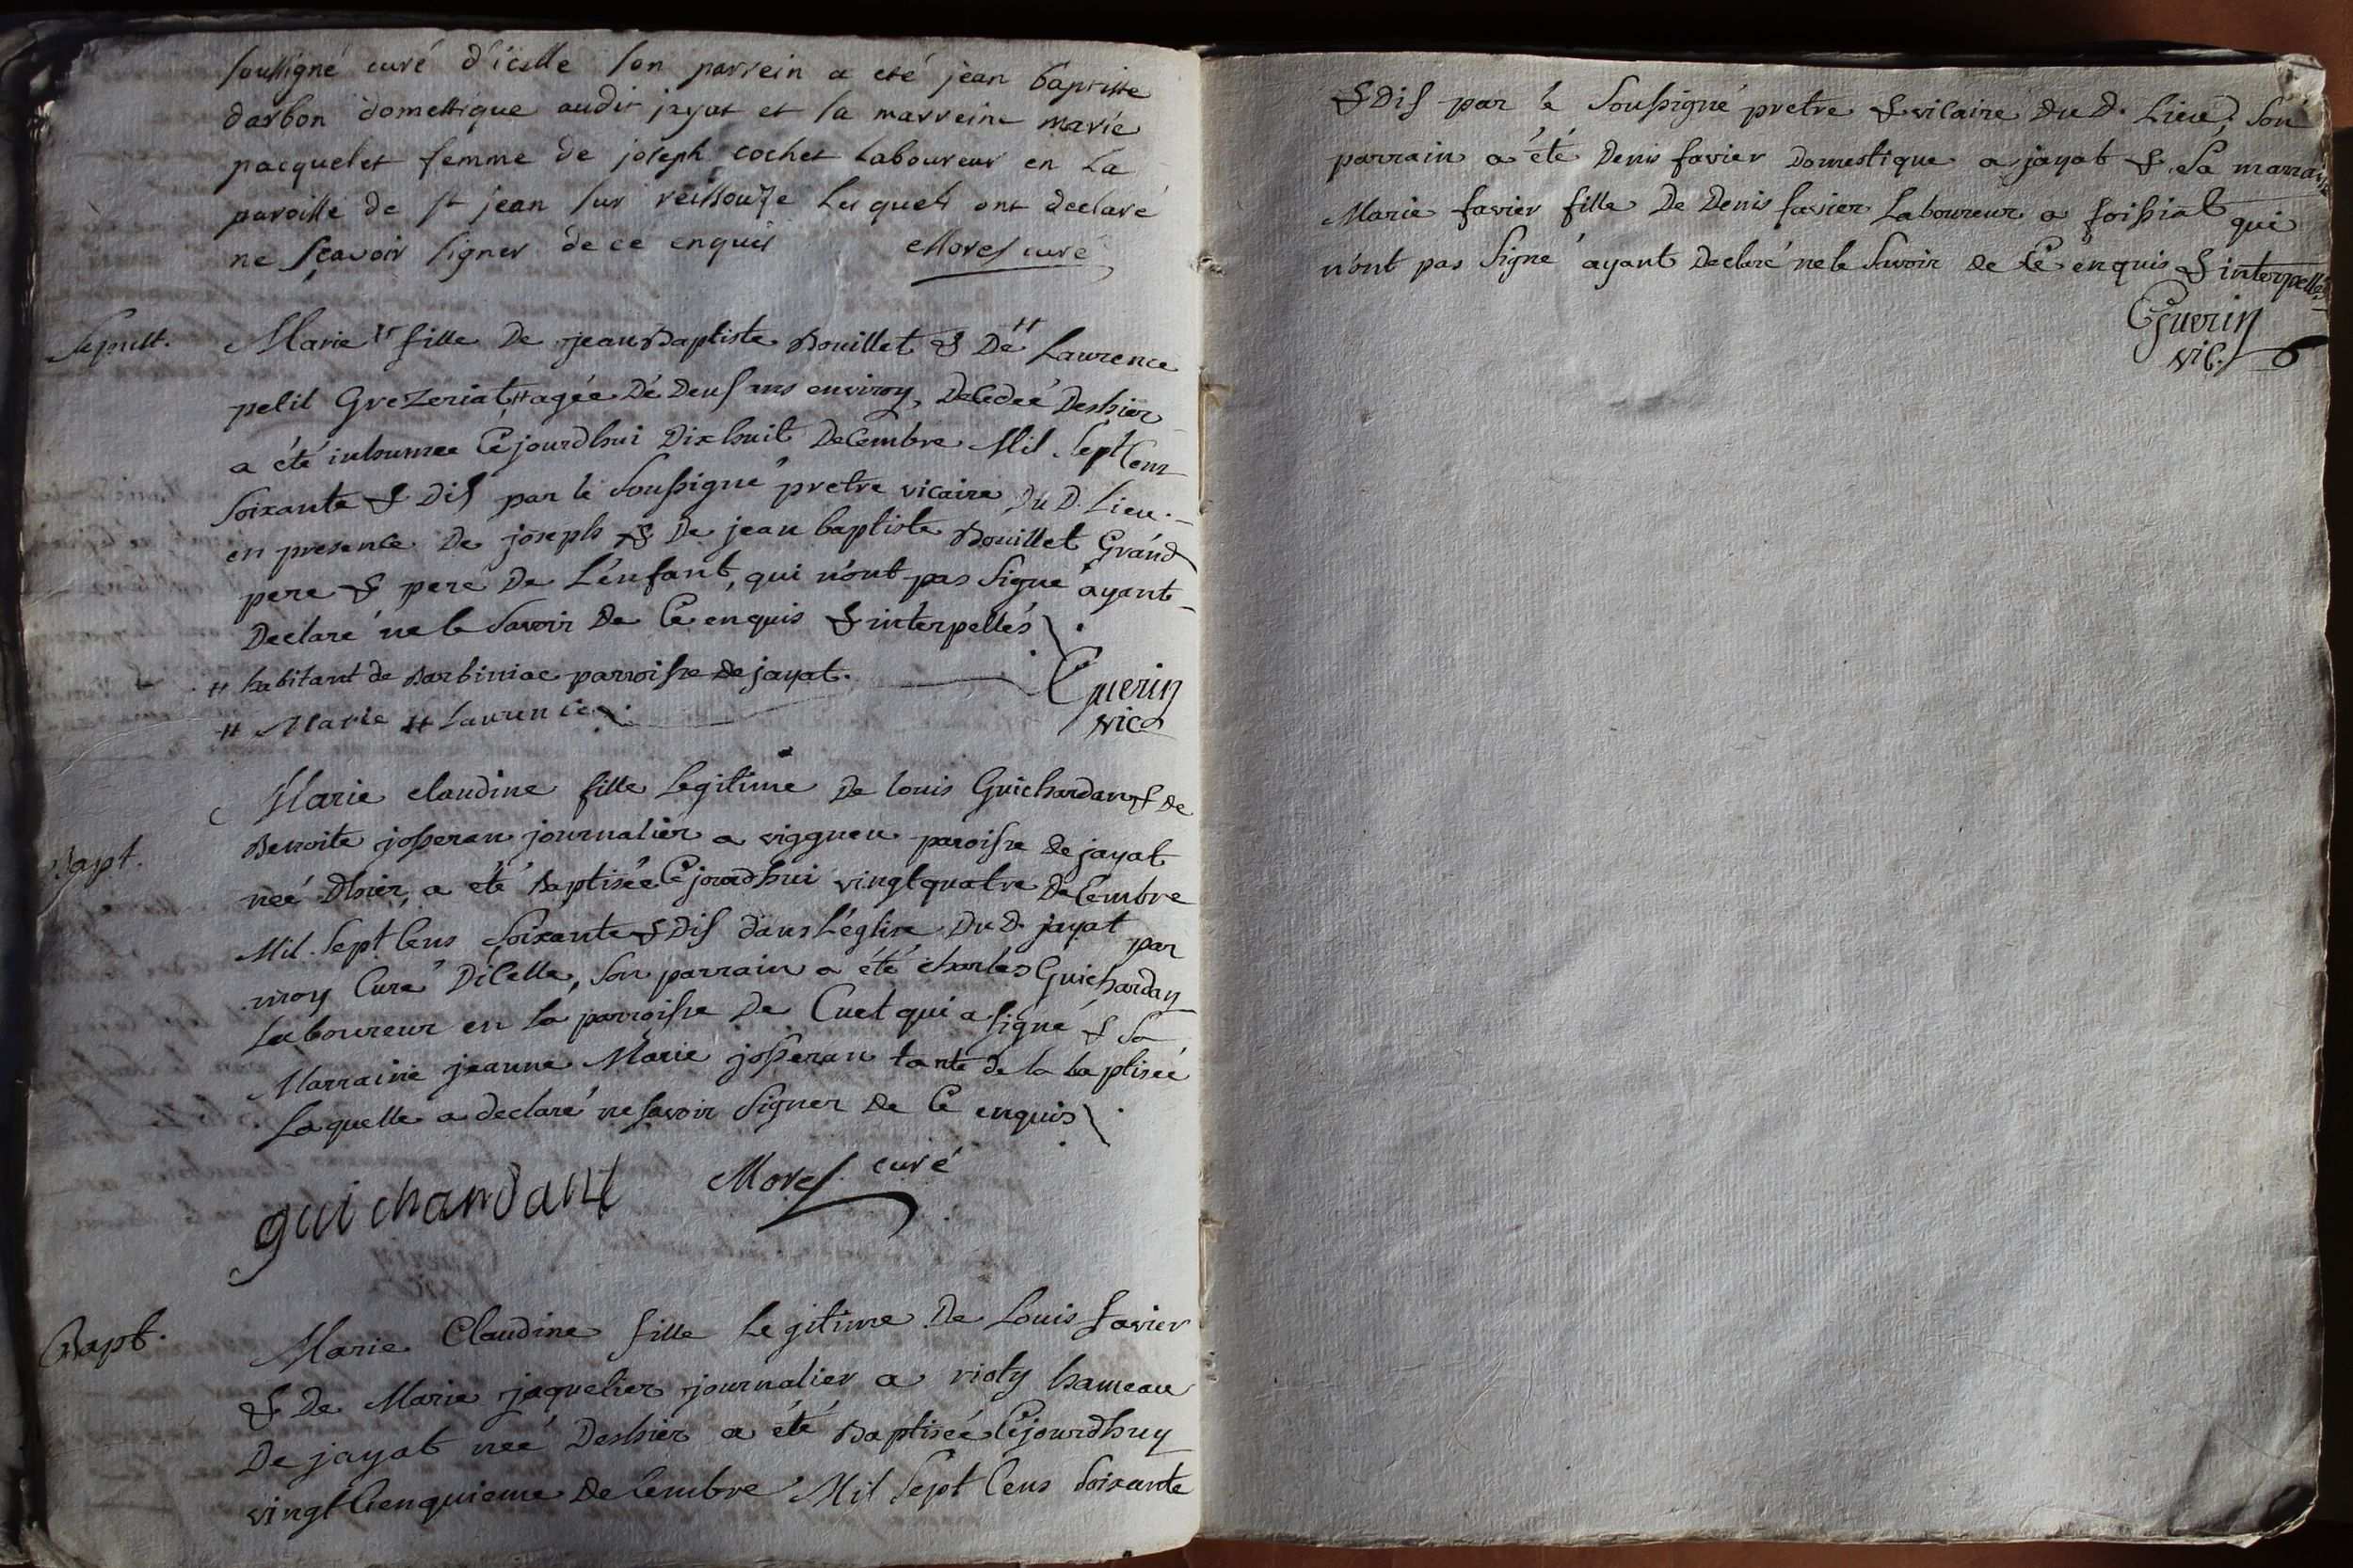 soussigné curé d'icelle son parrein a eté jean baptiste
darbon domestique audit jayat et sa marreine marie
pacquelet femme de joseph cochet Laboureur en La
paroisse de st jean sur reissouze Lesquels ont declaré
ne sçavoir signer de ce enquis Morel curé
Sepult.
Marie # fille De jean Baptiste Bouillet & De # Laurence
petit Grezeriat # agée De Deus ans environ, Decedeé Deshier
a été inhumee Cejourdhui Dixhuit Decembre Mil Sept Cent
soixante & Dis par le Soussigné pretre vicaire Du D. Lieu.
en presence De joseph & De jean baptiste Bouillet Grand
pere & pere De L'enfant, qui n'ont pas Signé ayant
Declaré ne le Savoir De Ce enquis & interpellés
# habitant de Barbiniac parroisse de jayat.
Guerin
# Marie # Laurence.
vic
Marie claudine fille Legitime De louis Guichardan & de
Bapt.
Benoite josseran journalier a viggneu paroisse de jayat
neé Dhier, a eté Baptisée Cejourdhui vingtquatre Decembre
Mil Sept Cens soixante & Dis dans L'églize Du D. jayat par
moy Curé Dicelle, Son parrain a été charles Guichardan
Laboureur en la parroisse De Cuet qui a signé & Sa
Marraine jeanne Marie josseran tante de la baptisée
Laquelle a declaré ne savoir Signer De Ce enquis
guichardant Morel curé
Bapt.
Marie Claudine fille Legitime De Louis favier
& De Marie jaquelier journalier a rioly hameau
De jayat neé Deshier a été Baptisée Cejourdhuy
vingt Cienquieme Decembre Mil Sept Cens Soixante
& Dis par le Soussigné pretre & vicaire Du D. Lieu, Son
parrain a été Denis favier Domestique a jayat & Sa marraine
Marie favier fille De Denis favier Laboureur a foissiat qui
n'ont pas Signé ayant Declaré ne le Savoir de Ce enquis & interpellés
Guerin
vic.